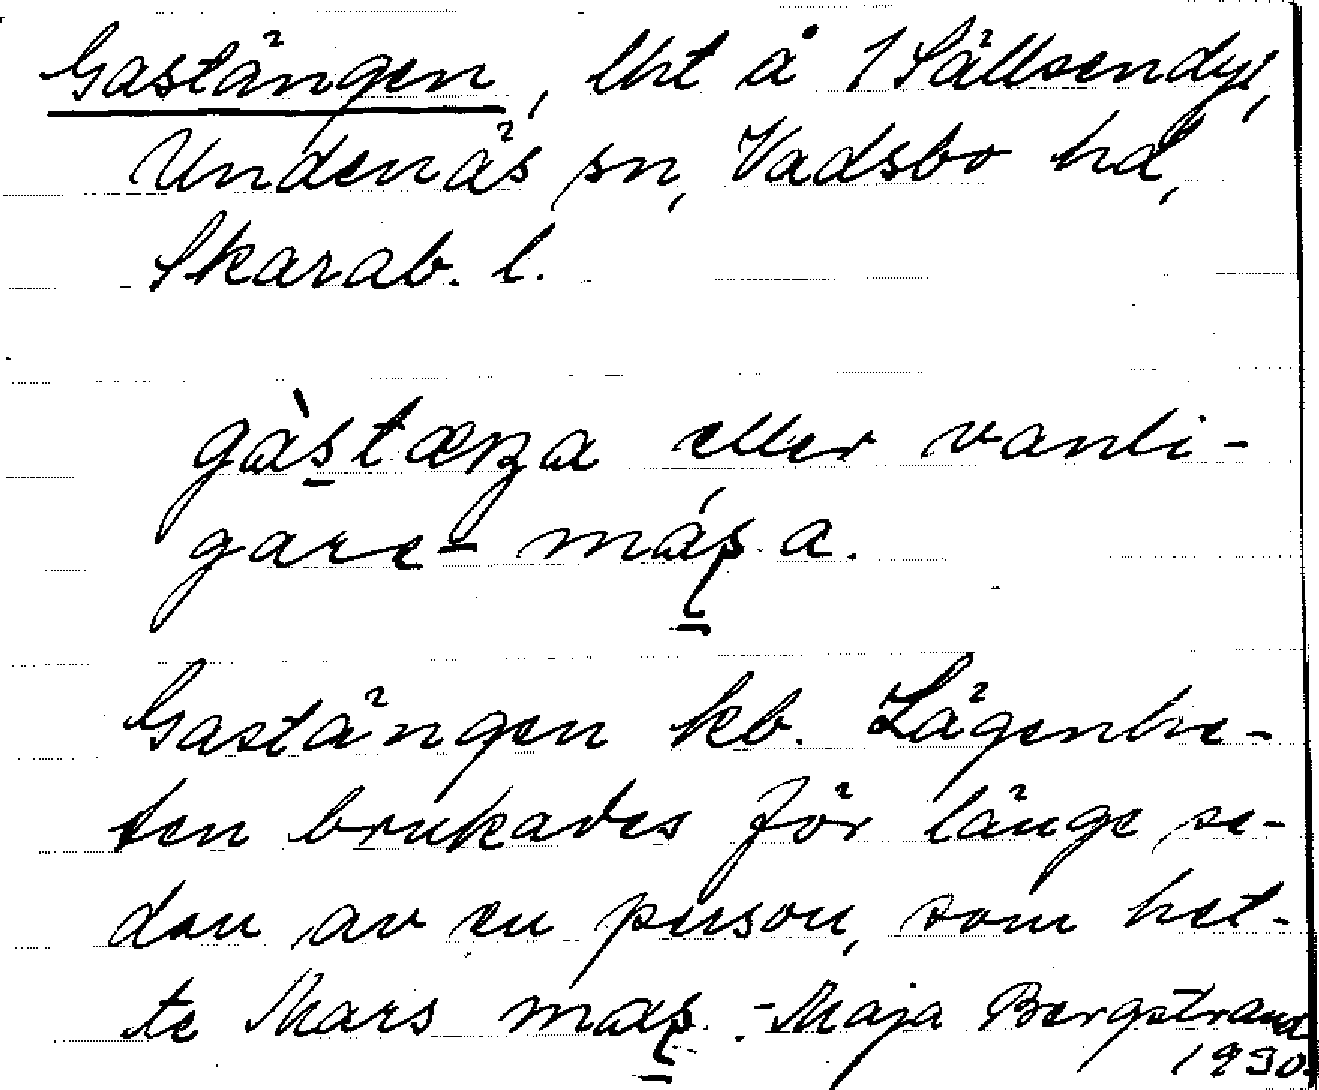 Gastängen, lht å 1 Sällsendyl,
Undenäs sn, Vadsbo hd,
Skarab. l.
gàstæŋa eller vanli-
gare- máʂa.
Gastängen kb. Lägenhe-
ten brukades för länge se-
dan av en person, som het-
te Mars maʂ. - Maja Bergstrand
1930.